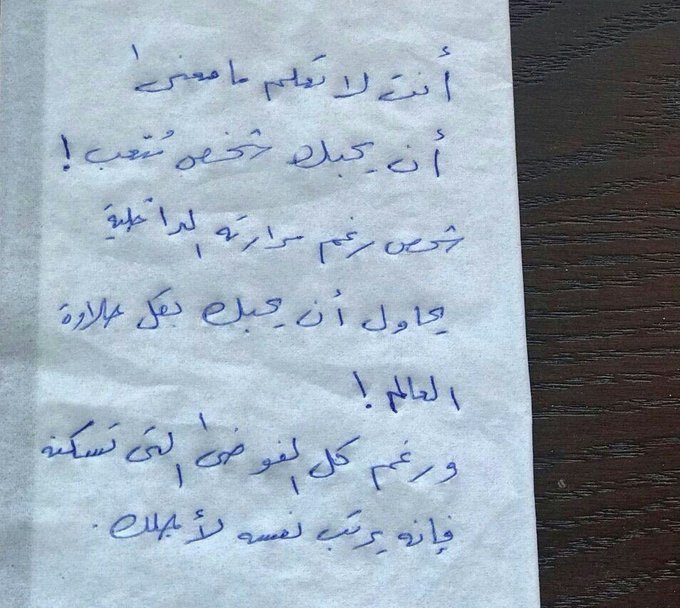 أنت لا تعلم ما معنى
أن يحبك شخص مُتعب !
شخص رغم مرارته الداخلية
يحاول أن يحبك بكل حلاوة
العالم !
ورغم كل الفوضى التي تسكنه
فإنه يرتب نفسه لأجلك .